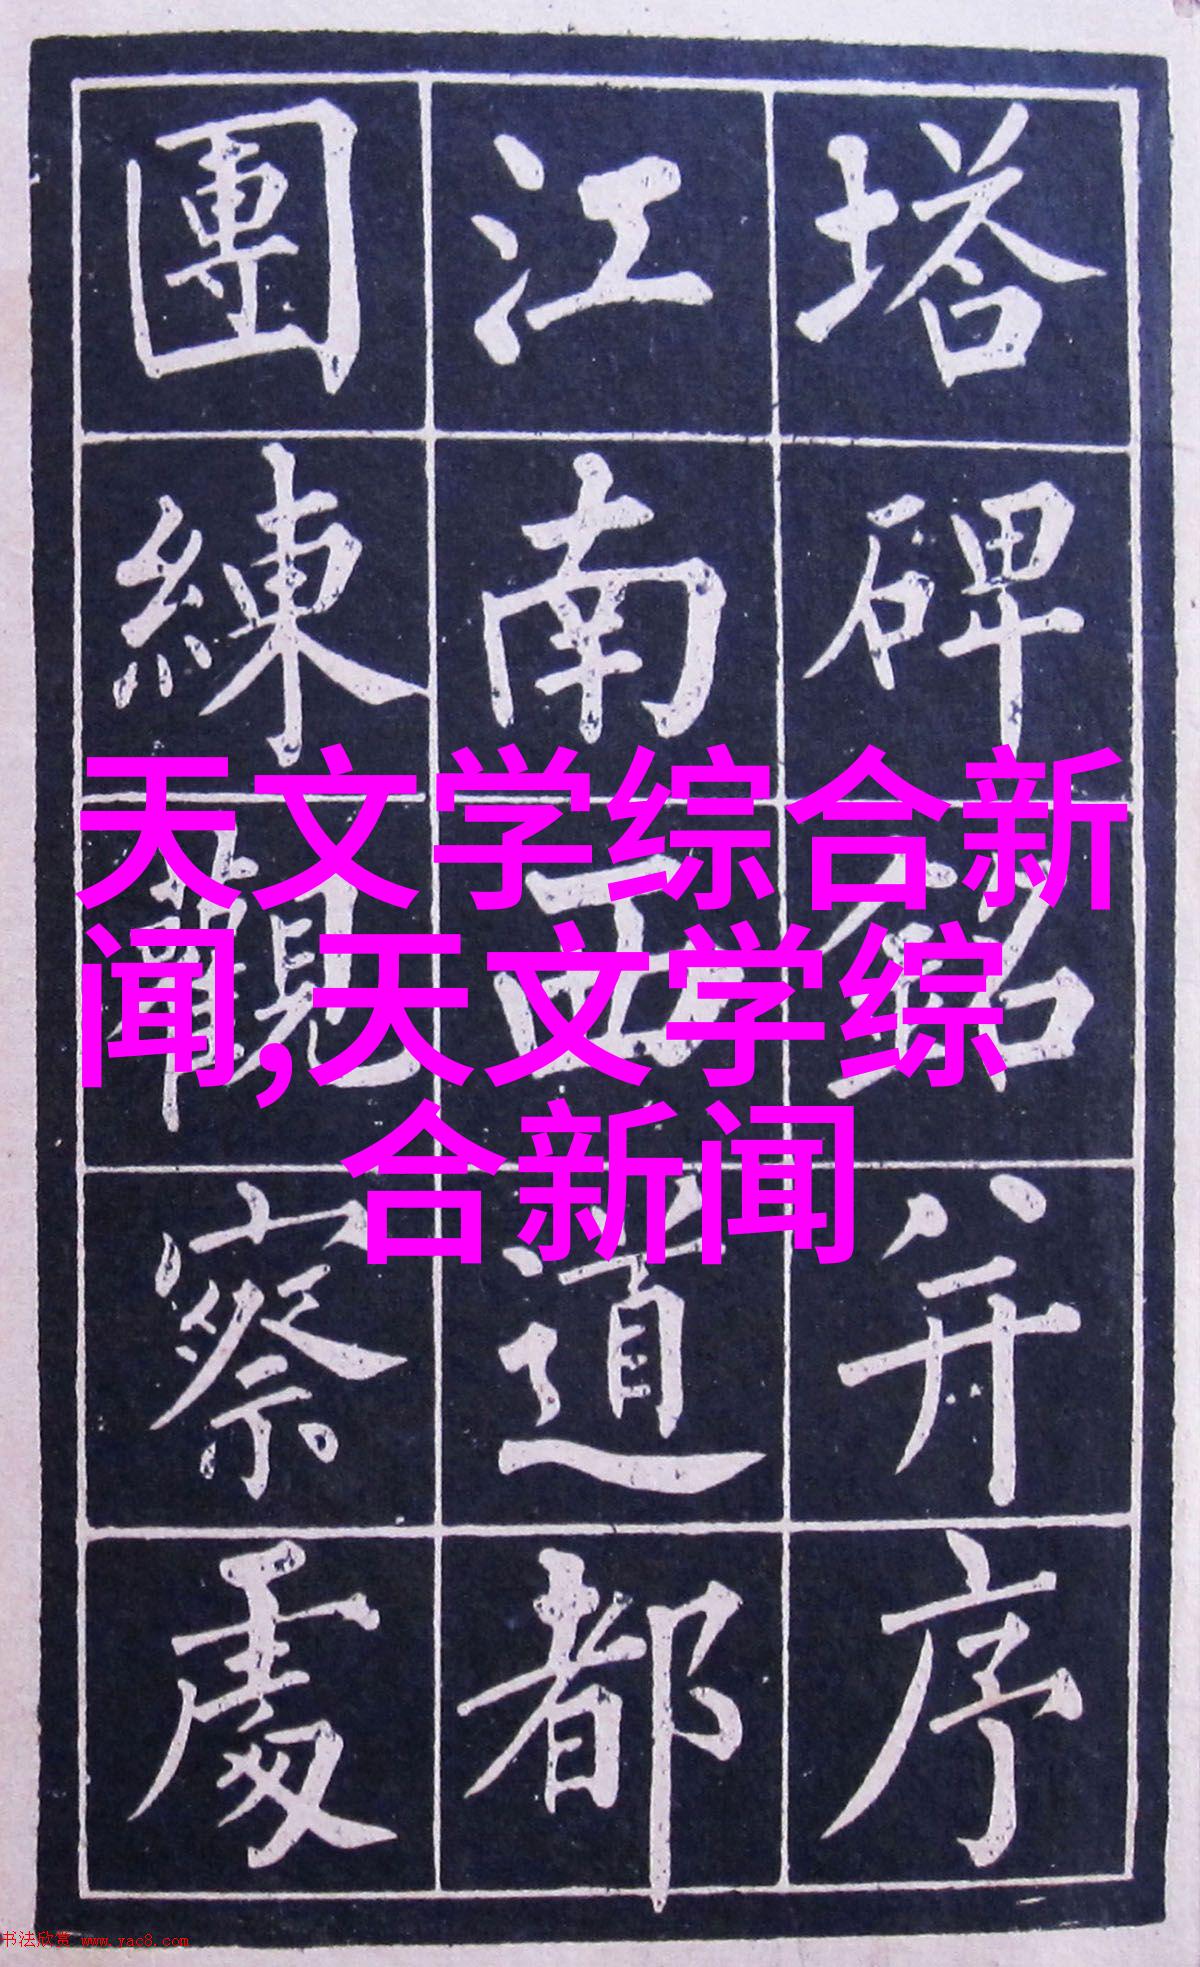 塔碑銘并序
江南西道都
團練觀察處
天文学综合新
闻,天文学综
合新闻
书法欣赏 www.yac8.com